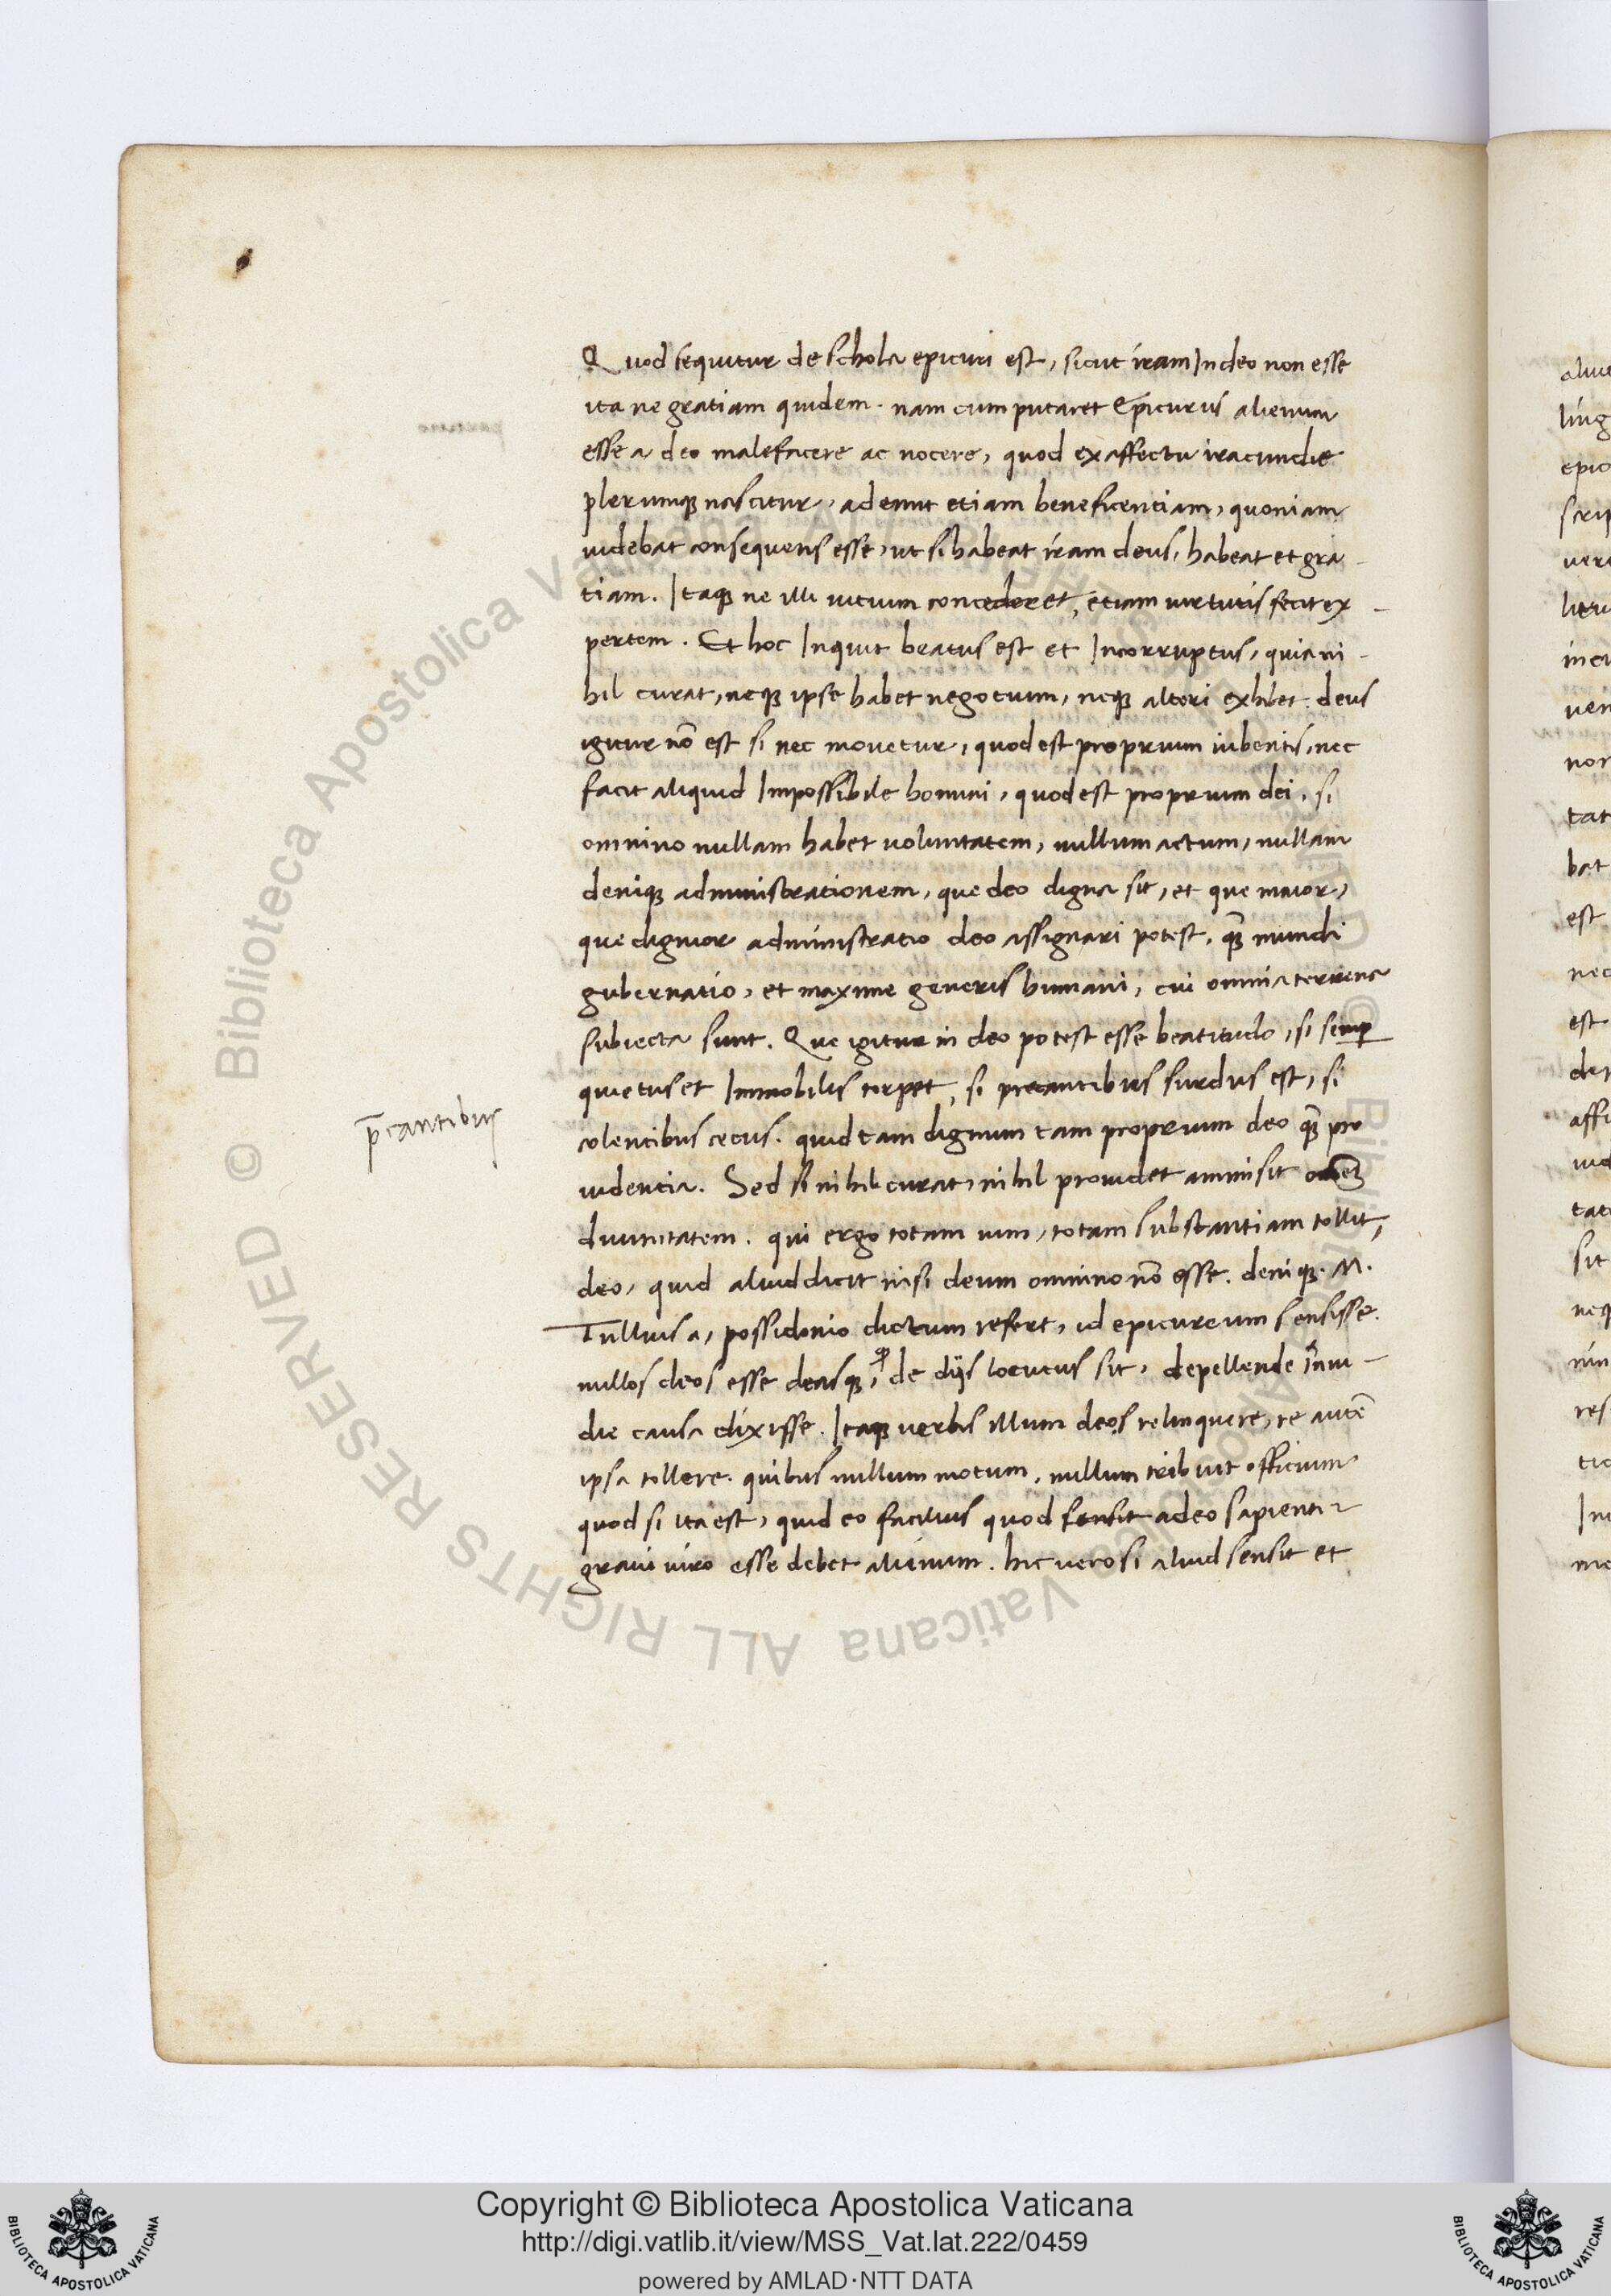 Quod sequitur de schola epicuri est, sicut iram In deo non esse
ita ne gratiam quidem. nam cum putaret Epicurus alienum
esse a deo malefacere ac nocere, quod ex affectu iracundie
plerumqꝫ nascitur, ademit etiam beneficentiam, quoniam
uidebat consequens esse, ut si habeat iram deus, habeat et gra-
tiam. Itaqꝫ ne illi uitium concederet, etiam uirtutis fecit ex-
pertem. Et hoc Inquit beatus est et Incorruptus, quia ni-
hil curat, neqꝫ ipse habet negotium, neqꝫ alteri exhibet. deus
igitur nō est si nec mouetur, quod est proprium iubentis, nec
facit aliquid Impossibile homini, quod est proprium dei, si
omnino nullam habet uoluntatem, nullum actum, nullam
deniqꝫ administrationem, que deo digna sit, et que maior,
que dignior administratio deo assignari potest, qꝫ̄ mundi
gubernatio, et maxime generis humani, cui omnia terrena
subiecta sunt. Que igitur in deo potest esse beatitudo, si semꝑ
quietus et Immobilis torpet, si precantibus surdus est, si
p̄cantibus
colentibus cecus. quid tam dignum tam proprium deo qꝫ̄ pro
uidentia. Sed si nihil curat, nihil prouidet ammisit
diuinitatem. qui ergo totam uim, totam substantiam tollit,
deo, quid aliud dicit nisi deum omnino nō esse. deniqꝫ. M.
Tullius a, possidonio dictum refert, id epicureum sensisse.
nullos deos esse deasqꝫ, de dijs locutus sit, depellende inui-
die causa dixisse. Itaqꝫ uerbis illum deos relinquere, re autē
ipsa tollere. quibus nullum motum, nullum tribuit officium
quod si ita est, quid eo facilius quod sensit adeo sapienti
graui uiro esse debet alienum. hic uero si aliud sensit et
Copyright © Biblioteca Apostolica Vaticana
http://digi.vatlib.it/view/MSS_Vat.lat.222/0459
powered by AMLAD·NTT DATA
BIBLIOTECA APOSTOLICA VATICANA
BIBLIOTECA APOSTOLICA VATICANA
© Biblioteca Apostolica Vaticana ALL RIGHTS RESERVED